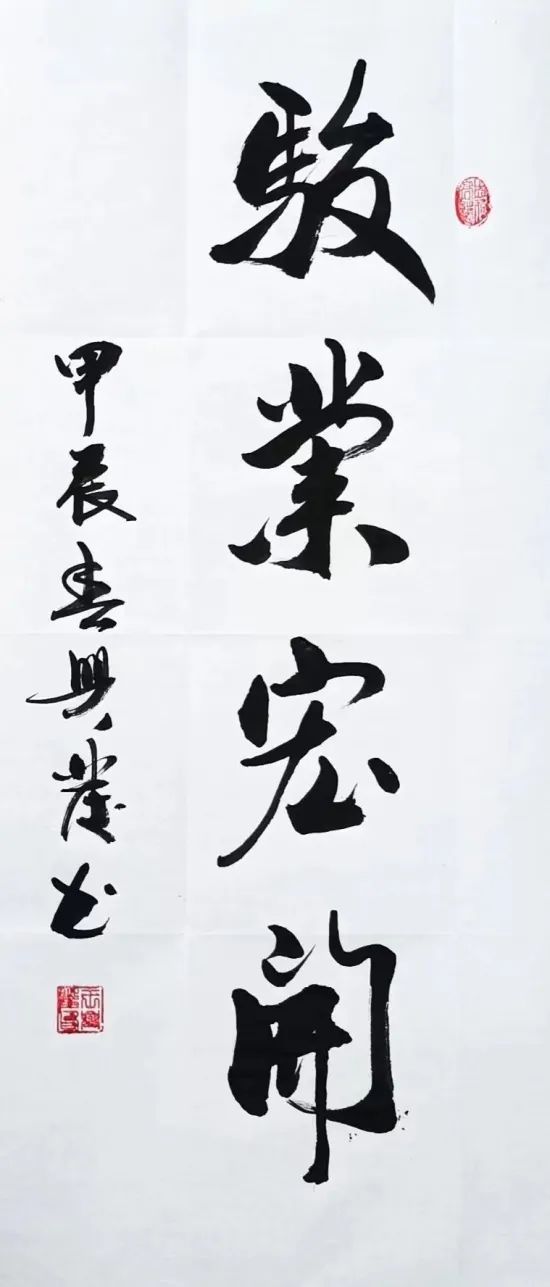 駿業宏開
甲辰春興